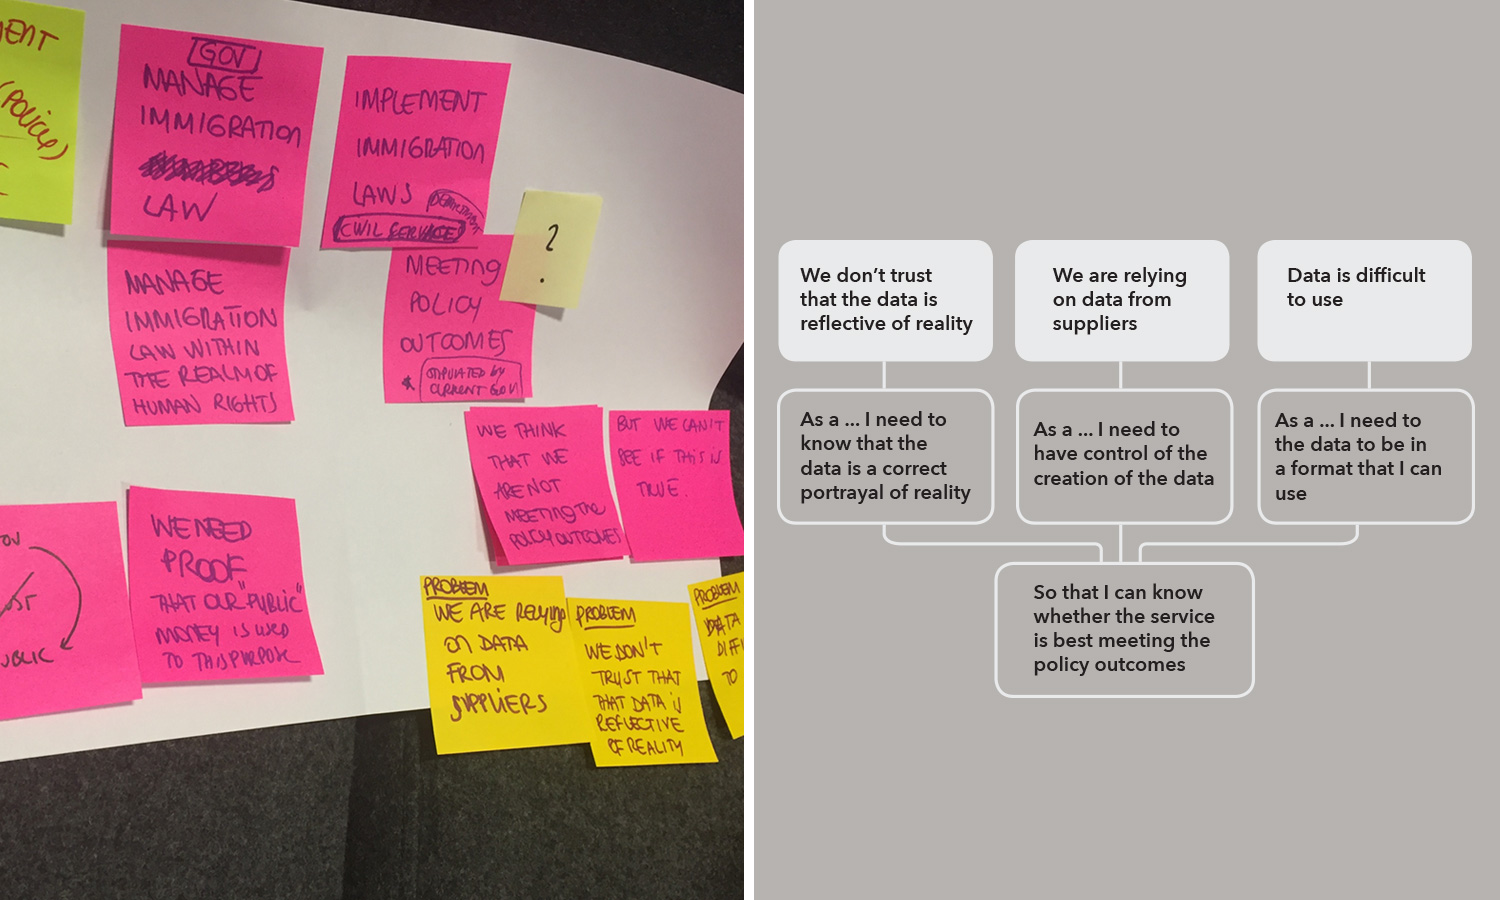 MENT
(POLICY)
GOV
MANAGE
IMMIGRATION
LAW
IMPLEMENT
IMMIGRATION
LAWS
CIVIL SERVICE
?
MANAGE
IMMIGRATION
LAW WITHIN
THE REALM OF
HUMAN RIGHTS
MEETING
POLICY
OUTCOMES
* STIPULATED by
CURRENT GOV
WE THINK
THAT WE
ARE NOT
MEETING THE
POLICY OUTCOMES
BUT WE CAN'T
SEE IF THIS IS
TRUE.
WE NEED
PROOF
THAT OUR "PUBLIC"
MONEY IS USED
TO THIS PURPOSE
PROBLEM
WE ARE RELYING
ON DATA
FROM
SUPPLIERS
PROBLEM
WE DON'T
TRUST THAT
THAT DATA IS
REFLECTIVE
OF REALITY
PROBLEM
DATA
DIFFI
TO
We don't trust
that the data is
reflective of reality
We are relying
on data from
suppliers
Data is difficult
to use
As a ... I need to
know that the
data is a correct
portrayal of reality
As a ... I need to
have control of the
creation of the data
As a ... I need to
the data to be in
a format that I can
use
So that I can know
whether the service
is best meeting the
policy outcomes